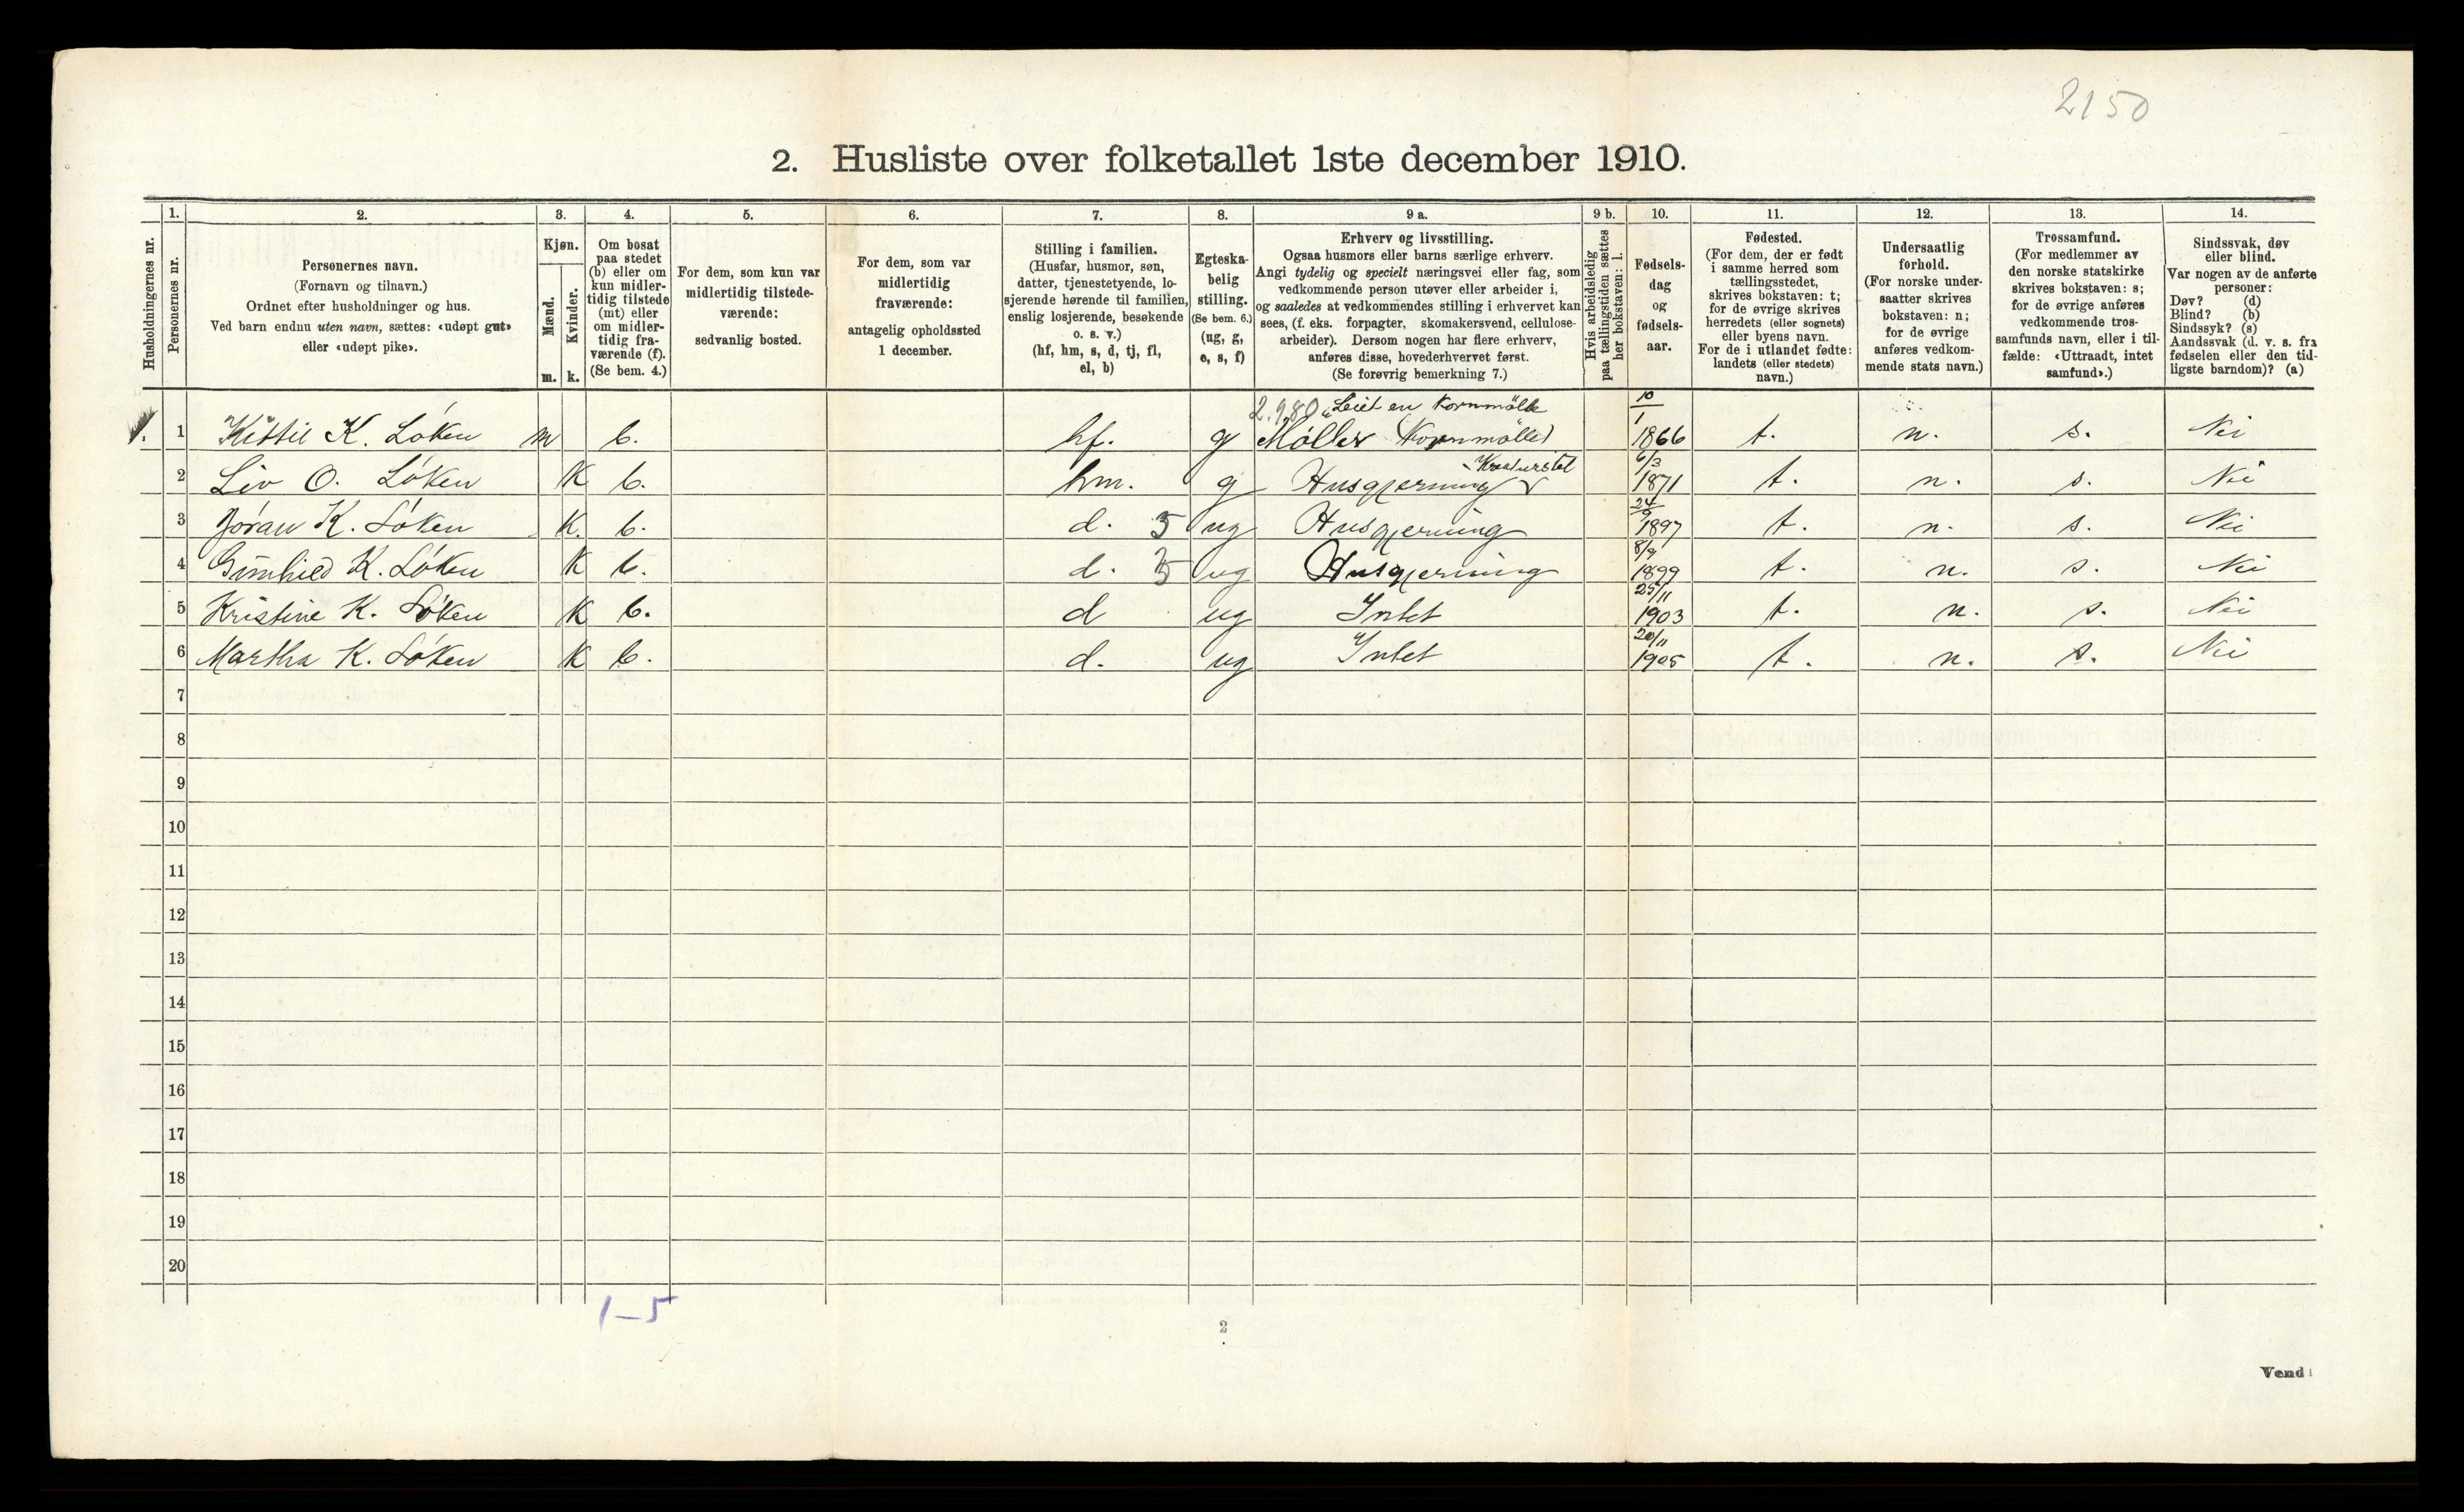 2150
2. Husliste over folketallet 1ste december 1910.
Husholdningernes nr.
1.
Personernes nr.
2.
Personernes navn.
(Fornavn og tilnavn.)
Ordnet efter husholdninger og hus.
Ved barn endnu uten navn, sættes: «udøpt gut»
eller «udøpt pike».
3.
Kjøn.
Mænd.
Kvinder.
m. k.
4.
Om bosat
paa stedet
(b) eller om
kun midler-
tidig tilstede
(mt) eller
om midler-
tidig fra-
værende (f).
(Se bem. 4.)
5.
For dem, som kun var
midlertidig tilstede-
værende:
sedvanlig bosted.
6.
For dem, som var
midlertidig
fraværende:
antagelig opholdssted
1 december.
7.
Stilling i familien.
(Husfar, husmor, søn,
datter, tjenestetyende, lo-
sjerende hørende til familien,
enslig losjerende, besøkende
o. s. v.)
(hf, hm, s, d, tj, fl,
el, b)
8.
Egteska-
belig
stilling.
(Se bem. 6.)
(ug, g,
e, s, f)
9 a.
Erhverv og livsstilling.
Ogsaa husmors eller barns særlige erhverv.
Angi tydelig og specielt næringsvei eller fag, som
vedkommende person utøver eller arbeider i,
og saaledes at vedkommendes stilling i erhvervet kan
sees, (f. eks. forpagter, skomakersvend, cellulose-
arbeider). Dersom nogen har flere erhverv,
anføres disse, hovederhvervet først.
(Se forøvrig bemerkning 7.)
9 b.
Hvis arbeidsledig
paa tællingstiden sættes
her bokstaven: l.
10.
Fødsels-
dag
og
fødsels-
aar.
11.
Fødested.
(For dem, der er født
i samme herred som
tællingsstedet,
skrives bokstaven: t;
for de øvrige skrives
herredets (eller sognets)
eller byens navn.
For de i utlandet fødte:
landets (eller stedets)
navn.)
12.
Undersaatlig
forhold.
(For norske under-
saatter skrives
bokstaven: n;
for de øvrige
anføres vedkom-
mende stats navn.)
13.
Trossamfund.
(For medlemmer av
den norske statskirke
skrives bokstaven: s;
for de øvrige anføres
vedkommende tros-
samfunds navn, eller i til-
fælde: «Uttraadt, intet
samfund».)
14.
Sindssvak, døv
eller blind.
Var nogen av de anførte
personer:
Døv? (d)
Blind? (b)
Sindssyk? (s)
Aandssvak (d. v. s. fra
fødselen eller den tid-
ligste barndom)? (a)
2.980 Leiet en Kornmölle 10
1. 1 Kittil K. Løken m b. hf. g Møller (Kornmölle) 1 1866 t. n. s. Nei
Kreaturstel 6/3
2 Liv O. Løken K b. hm. g Husgjerning 1871 t. n. s. Nei
24
3 Jøran K. Løken K. b. d. 5 ug Husgjerning 9 1897 t. n. s. Nei
8/9
4 Gunhild K. Løken K b. d. 5 ug Husgjerning 1899 t. n. s. Nei
25/11
5 Kristine K. Løken K b. d ug Intet 1903 t. n. s. Nei
20/11
6 Martha K. Løken K b. d. ug Intet 1905 t. n. s. Nei
7
8
9
10
11
12
13
14
15
16
17
18
19
20
1-5
2
Vend